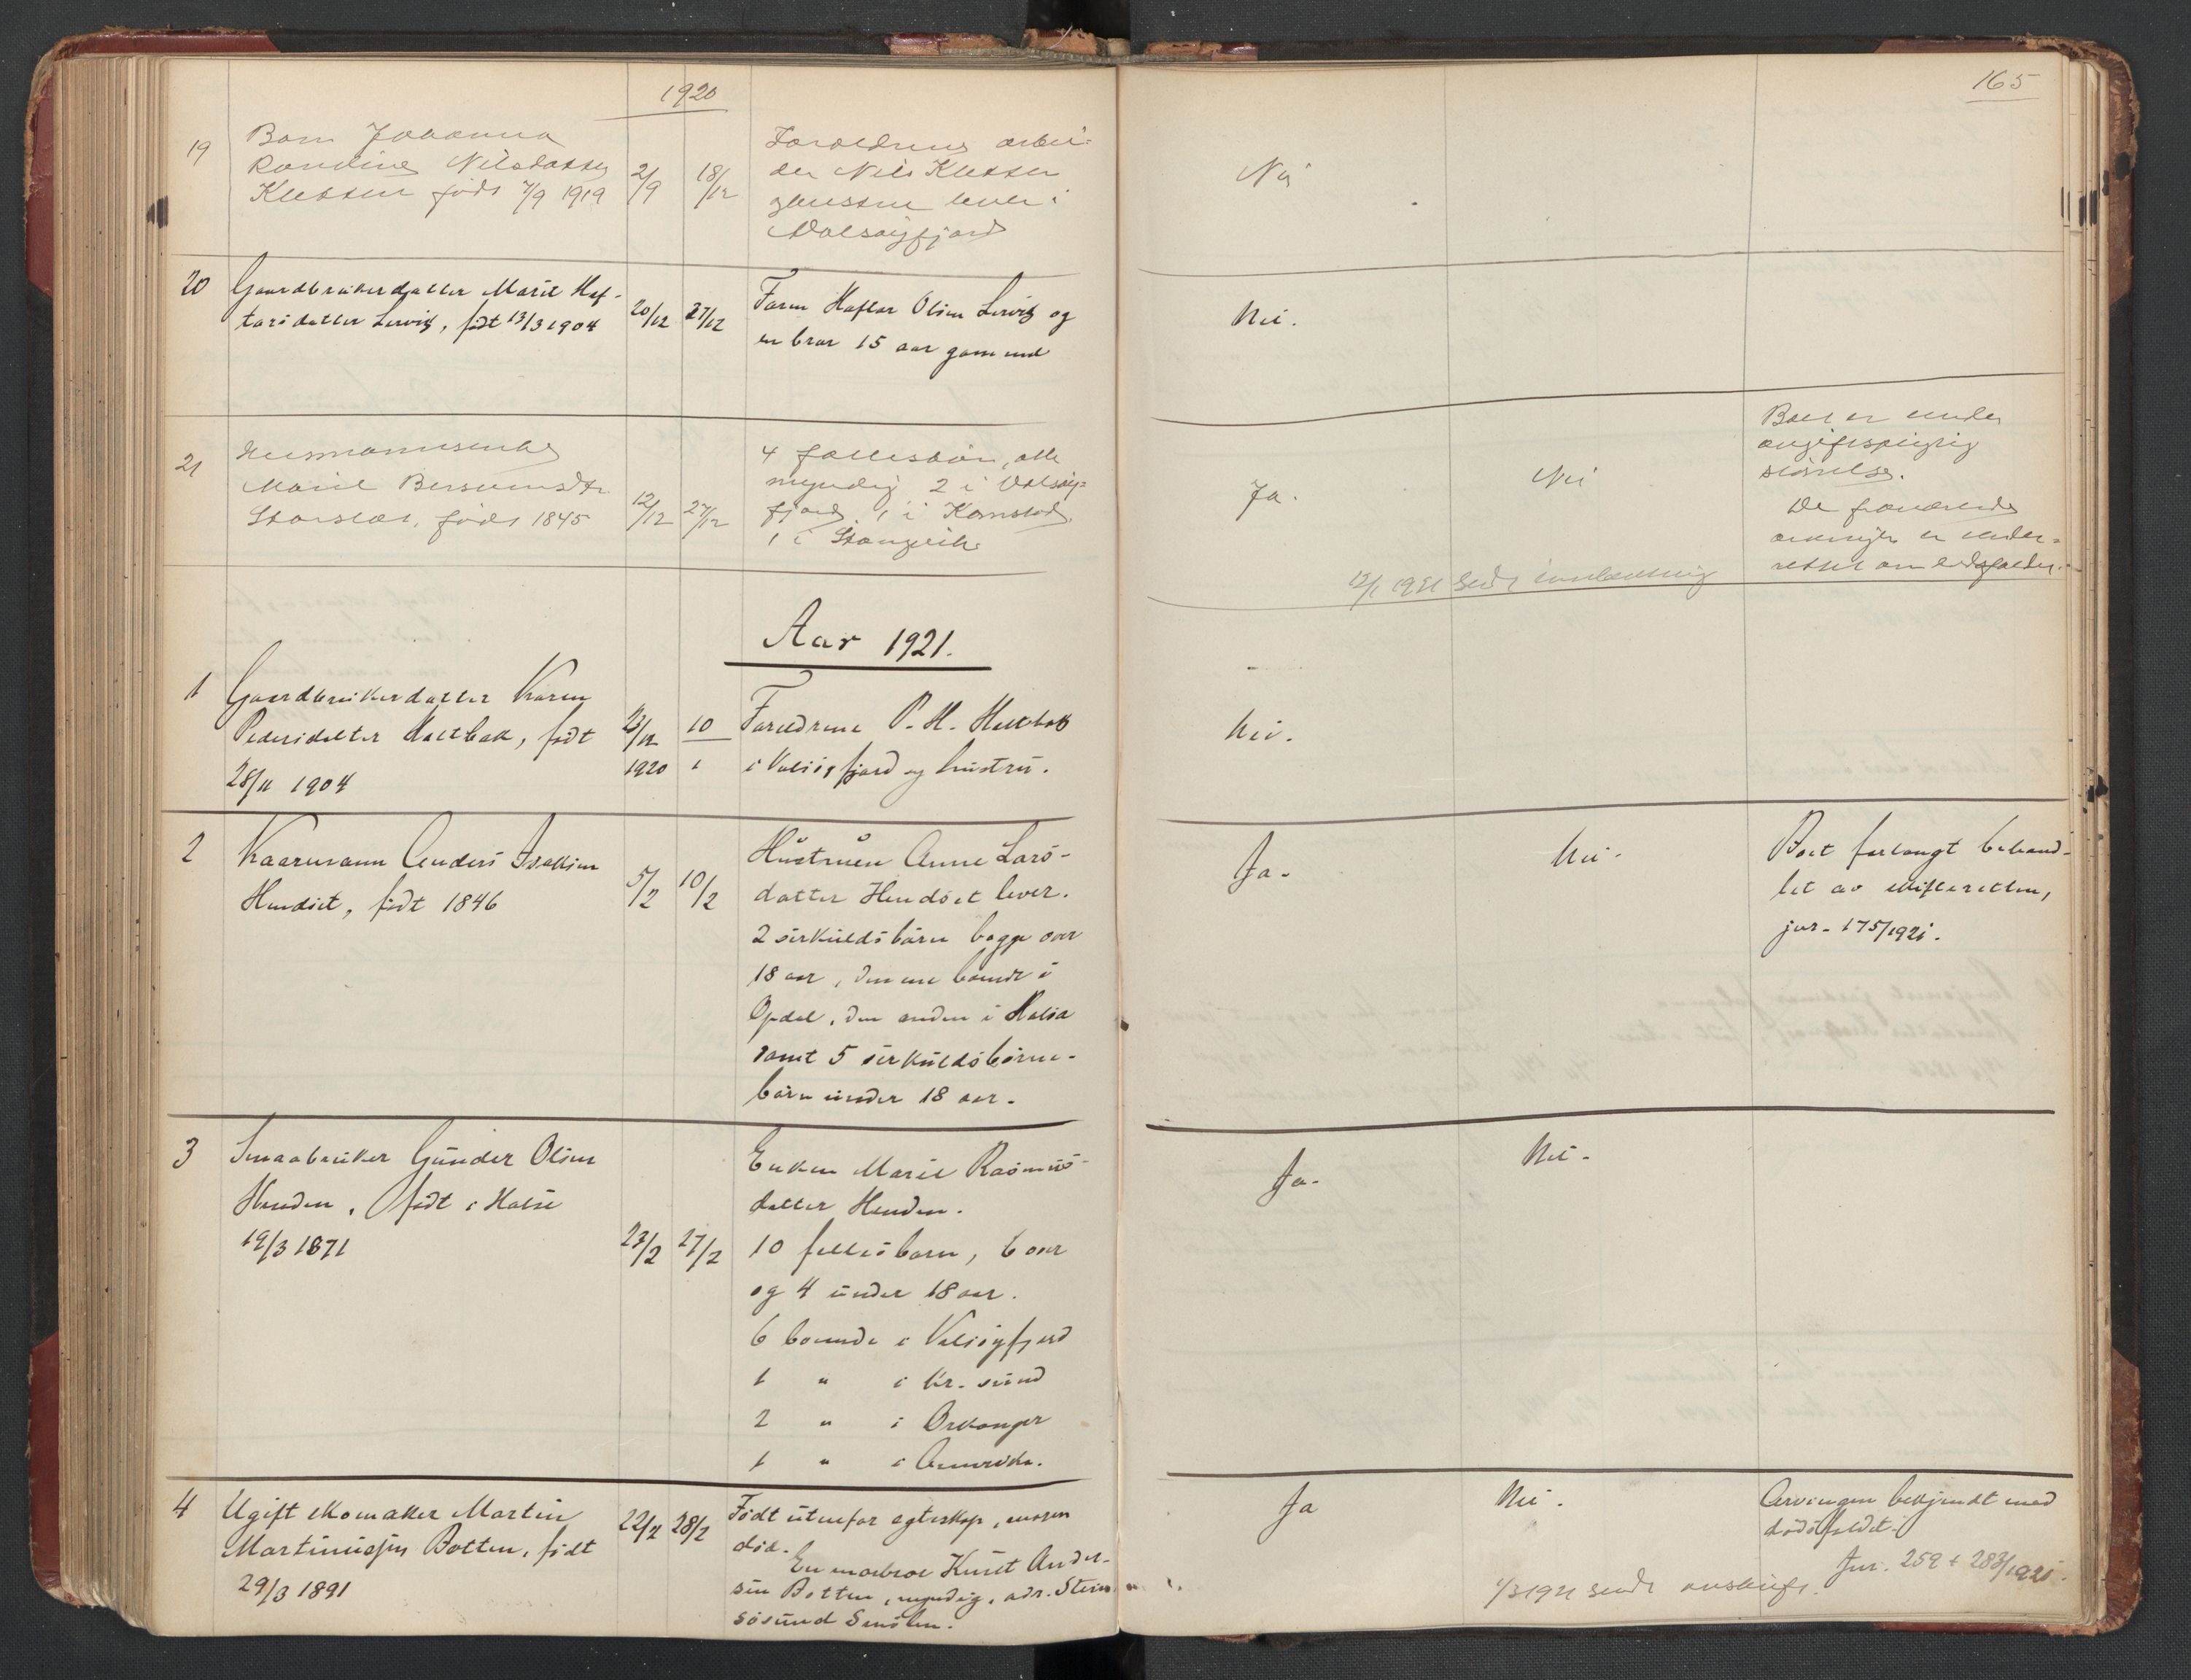 1920
165
19
Barn Johanna
Nilsdatter
Kletten født 7/9 1919
2/9
18/12
Forældrene arbei-
der Nils Kletten
lever i
Valsøyfjord
Nei
20
Gaardbrukerdatter Marit Haf-
torsdatter Lervig, født 13/3 1904
20/12
27/12
Faren Haftor Olsen Lervig og
en bror 15 aar gammel
Nei.
21
Marit
født 1845
12/12
27/12
4 fellesbørn, alle
myndig 2 i Valsøy-
fjord, 1 i
1 i Stangvik
Ja.
Nei
Boet er under
avgiftspligtig
størrelse.
De fraværende
arvinger er under-
rettet om dødsfaldet.
12/1 1921 sendt innberetning
Aar 1921.
1
Gaardbrukerdatter Karen
Pedersdatter Haltbak, født
28/11 1904
23/12
1920
10
1
Forældrene P. H. Haltbak
i Valsøyfjord og hustru.
Nei.
2
Kaarmann Anders Isaksen
Hendset, født 1846
5/2
10/2
Hustruen Anne Lars-
datter Hendset lever.
2 særkuldsbørn begge over
18 aar, den ene boende i
Opdal, den anden i Halsa
samt 5 særkuldsbørne-
børn under 18 aar.
Ja.
Nei.
Boet forlangt behand-
let av skifteretten,
jur. 175/1921.
3
Smaabruker Gunder Olsen
Henden, født i Halse
19/3 1871
23/2
27/2
Enken Marit Rasmus-
datter Henden.
10 fellesbarn, 6 over
og 4 under 18 aar.
6 boende i Valsøyfjord
1 " i Kr. sund
2 " i Orkanger
1 " i Amerika.
Ja.
Nei.
4
Ugift skomaker Martin
Martinussen Botten, født
29/3 1891
22/2
28/2
Født utenfor egteskap, moren
død.
En morbror Knut Ander-
sen Botten, myndig, adr. Stein-
søsund Smølen.
Ja
Nei.
Arvingen bekjendt med
dødsfaldet.
Jur. 259 + 283/1921.
1/3 1921 sendt avskrift.